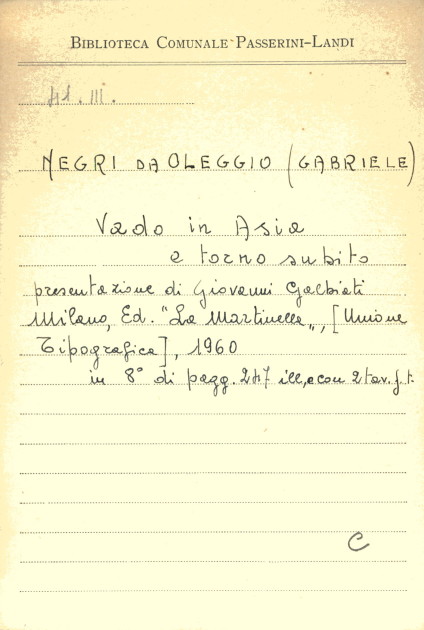 BIBLIOTECA COMUNALE PASSERINI-LANDI
41. III.
NEGRI DA OLEGGIO (GABRIELE)
Vado in Asia
e torno subito
presentazione di Giovanni Galbiati
Milano, Ed. "La Martinella", [Unione
Tipografica], 1960
in 8° di pagg. 247 ill. e con 2 tav. f. t.
C